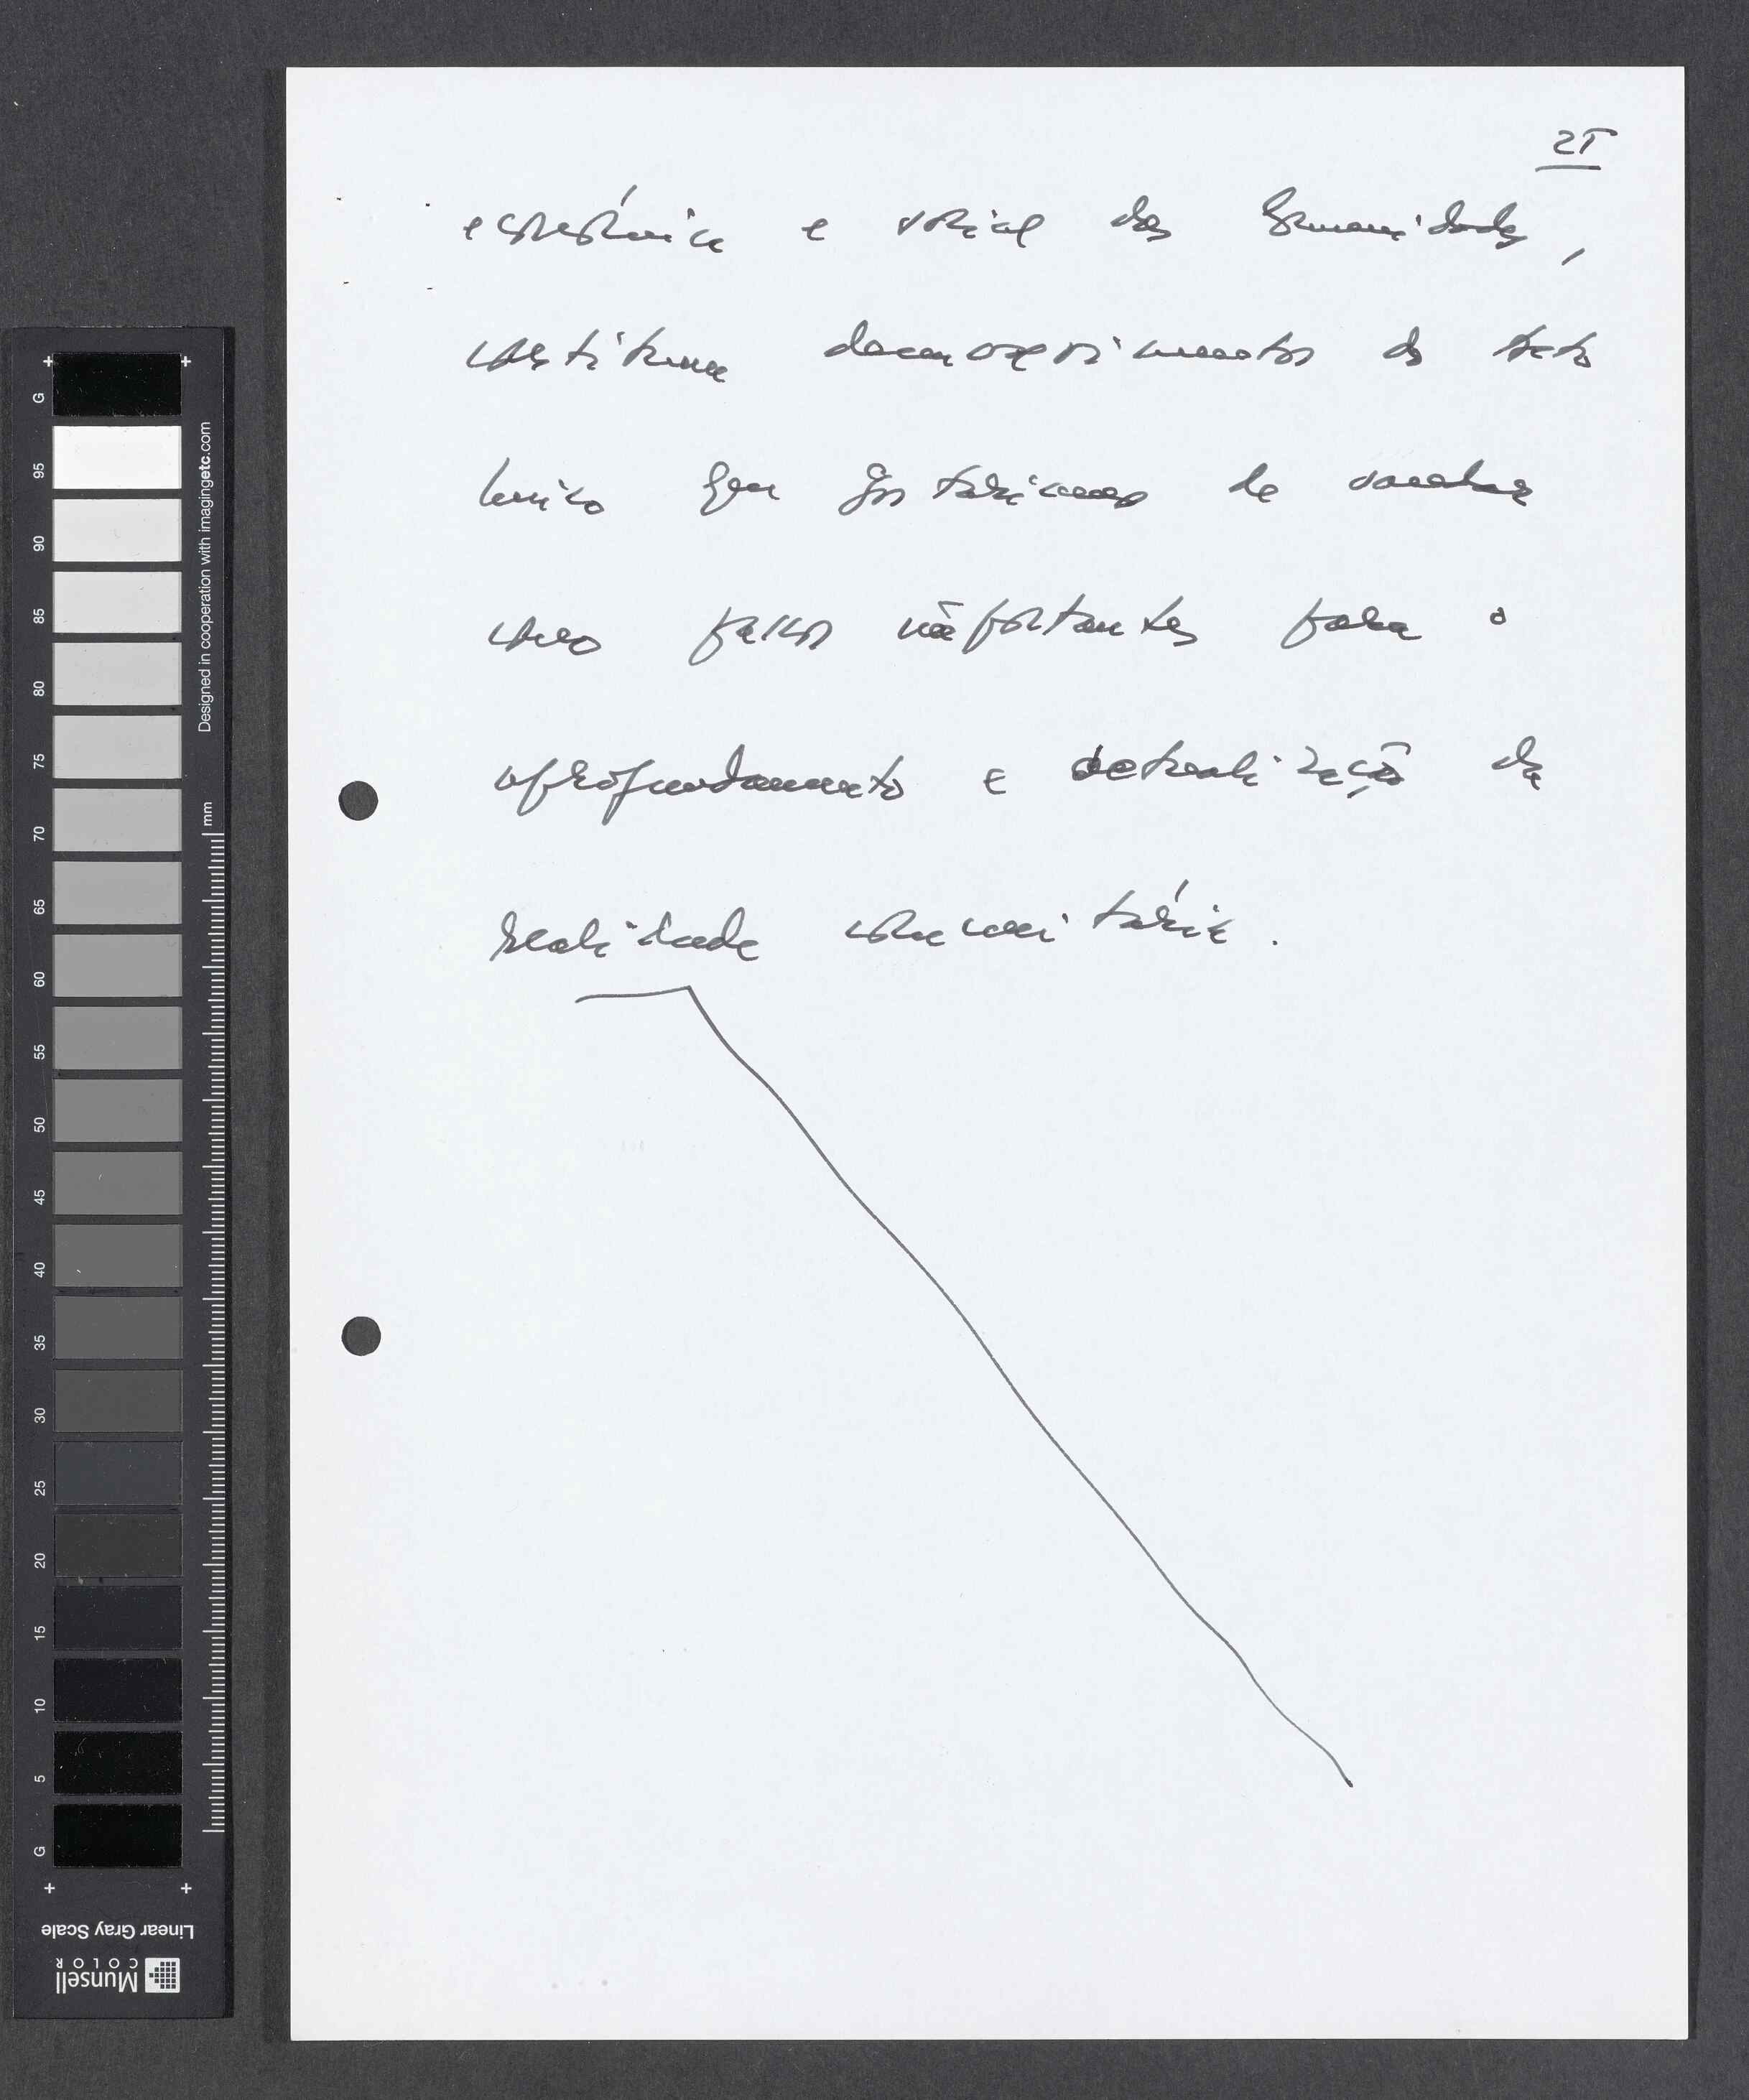 25
económica e social das Comunidades,
constituem desenvolvimentos do texto
único que gostaríamos de saudar
como passos importantes para o
aprofundamento e actualização da
realidade comunitária.
Designed in cooperation with imagingetc.com
mm
G
95
90
85
80
75
70
65
60
55
50
45
40
35
30
25
20
15
10
5
G
Linear Gray Scale
Munsell
COLOR